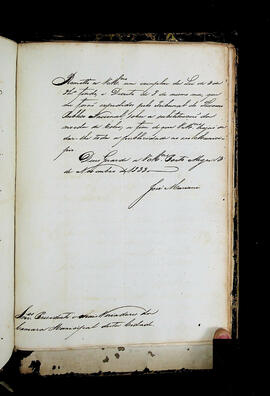 Remetto a VMces um exemplar da Lei de 3 de
8bro findo, e Decreto de 8 do mesmo mez, que
me forão expedidos pelo Tribunal do Thesouro
Publico Nacional, sobre a substituição da
moeda de Cobre, a fim de que VMces hajão de
dar-lhe toda a publicidade
Deos Guarde a VMces Porto Alegre
de Novembro de 1833
José Mariani
Snrs Presidente e mais Vereadores da
Camara Municipal desta Cidade